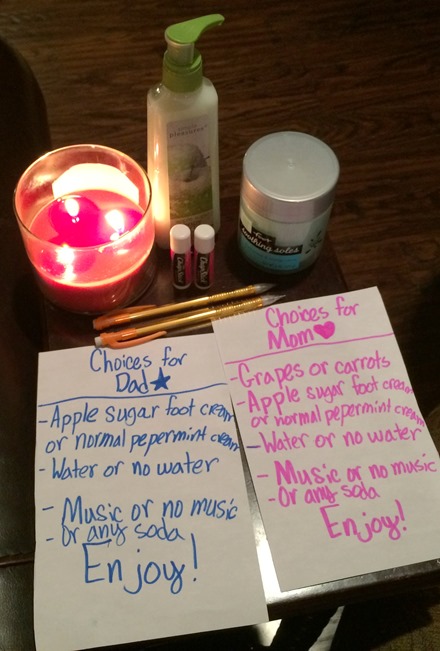 pleasures
soothing soles
ChapStick
ChapStick
Choices for
Dad
- Apple sugar foot cream
or normal pepermint cream
- Water or no water
- Music or no music
- Or any soda
Enjoy!
Choices for
Mom
- Grapes or carrots
- Apple sugar foot cream
or normal pepermint cream
- Water or no water
- Music or no music
- Or any soda
Enjoy!